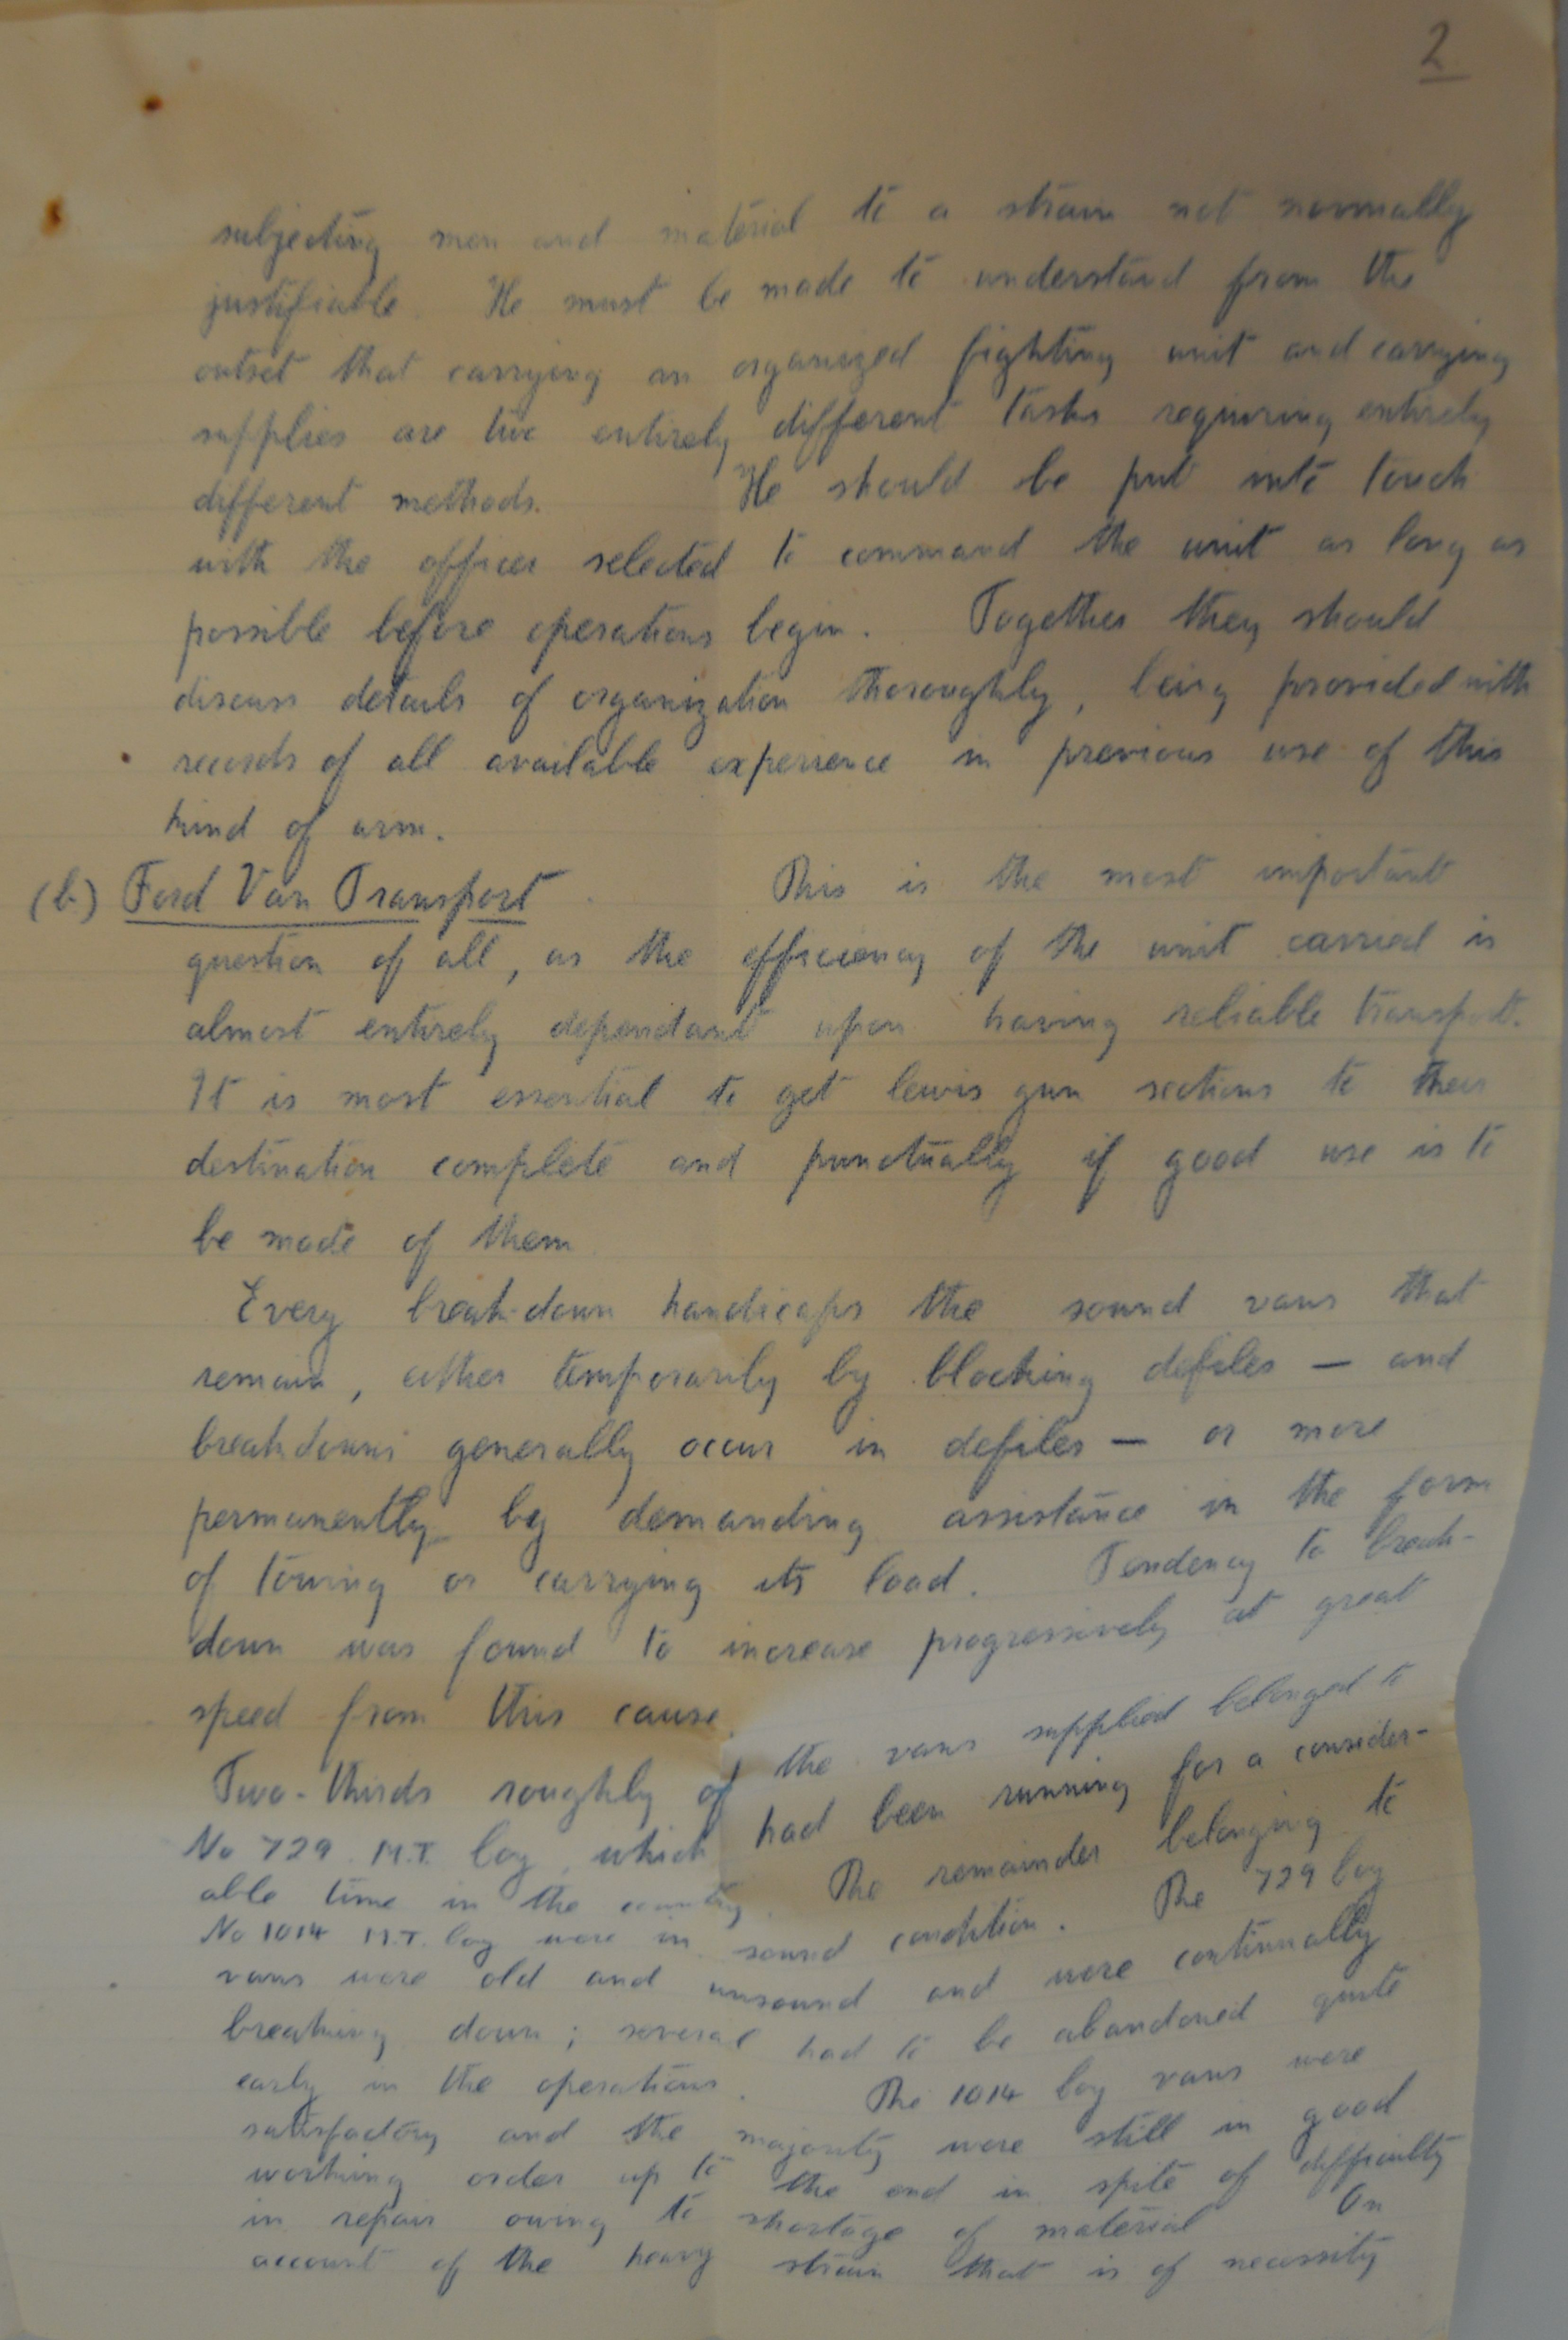 2
subjecting men and material to a strain not normally
justifiable. He must be made to understand from the
outset that carrying an organized fighting unit and carrying
supplies are two entirely different tasks requiring entirely
different methods. He should be put into touch
with the officer selected to command the unit as long as
possible before operations begin. Together they should
discuss details of organization thoroughly, being provided with
records of all available experience in previous use of this
kind of arm.
(b.) Ford Van Transport. This is the most important
question of all, as the efficiency of the unit carried is
almost entirely dependant upon having reliable transport.
It is most essential to get lewis gun sections to their
destination complete and punctually if good use is to
be made of them
Every break-down handicaps the sound vans that
remain, either temporarily by blocking defiles — and
breakdowns generally occur in defiles — or more
permanently by demanding assistance in the form
of towing or carrying its load. Tendency to break-
down was found to increase progressively at great
speed from this cause.
Two-thirds roughly of the vans supplied belonged to
No 729 M.T. Coy, which had been running for a consider-
able time in the country. The remainder belonging to
No 1014 M.T. Coy were in sound condition. The 729 Coy
vans were old and unsound and were continually
breaking down; several had to be abandoned quite
early in the operations. The 1014 Coy vans were
satisfactory and the majority were still in good
working order up to the end in spite of difficulty
in repair owing to shortage of material On
account of the heavy strain that is of necessity